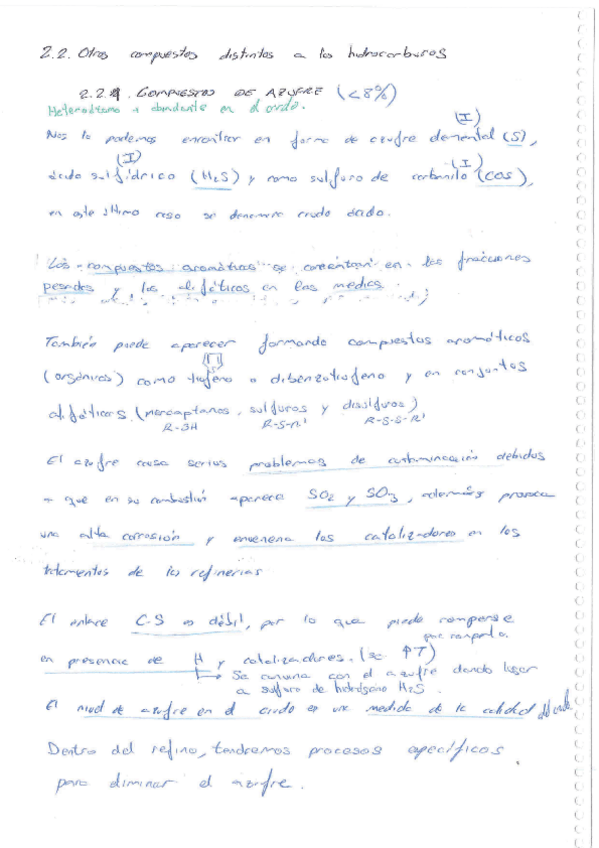 2.2. Otros compuestos distintos a los hidrocarburos
2.2.1. COMPUESTOS DE AZUFRE (<8%)
Heteroátomo + abundante en el crudo.
(I)
Nos lo podemos encontrar en forma de azufre elemental (S),
(I) (I)
ácido sulfídrico (H₂S) y como sulfuro de carbonilo (COS),
en este último caso se denomina crudo ácido.
Los compuestos aromáticos se concentran en las fracciones
pesadas y los alifáticos en las medias
También puede aparecer formando compuestos aromáticos
(orgánicos) como tiofeno o dibenzotiofeno y en conjuntos
alifáticos (mercaptanos, sulfuros y disulfuros)
R-SH R-S-R' R-S-S-R'
El azufre causa serios problemas de contaminación debidos
a que en su combustión aparece SO₂ y SO₃, además provoca
una alta corrosión y envenena los catalizadores en los
tratamientos de las refinerias
El enlace C-S es débil, por lo que puede romperse
que romperlo.
en presencia de H y catalizadores. (se ↑T)
Se combina con el azufre dando lugar
a sulfuro de hidrógeno H₂S.
El nivel de azufre en el crudo es una medida de la calidad del crudo
Dentro del refino, tendremos procesos específicos
para eliminar el azufre.